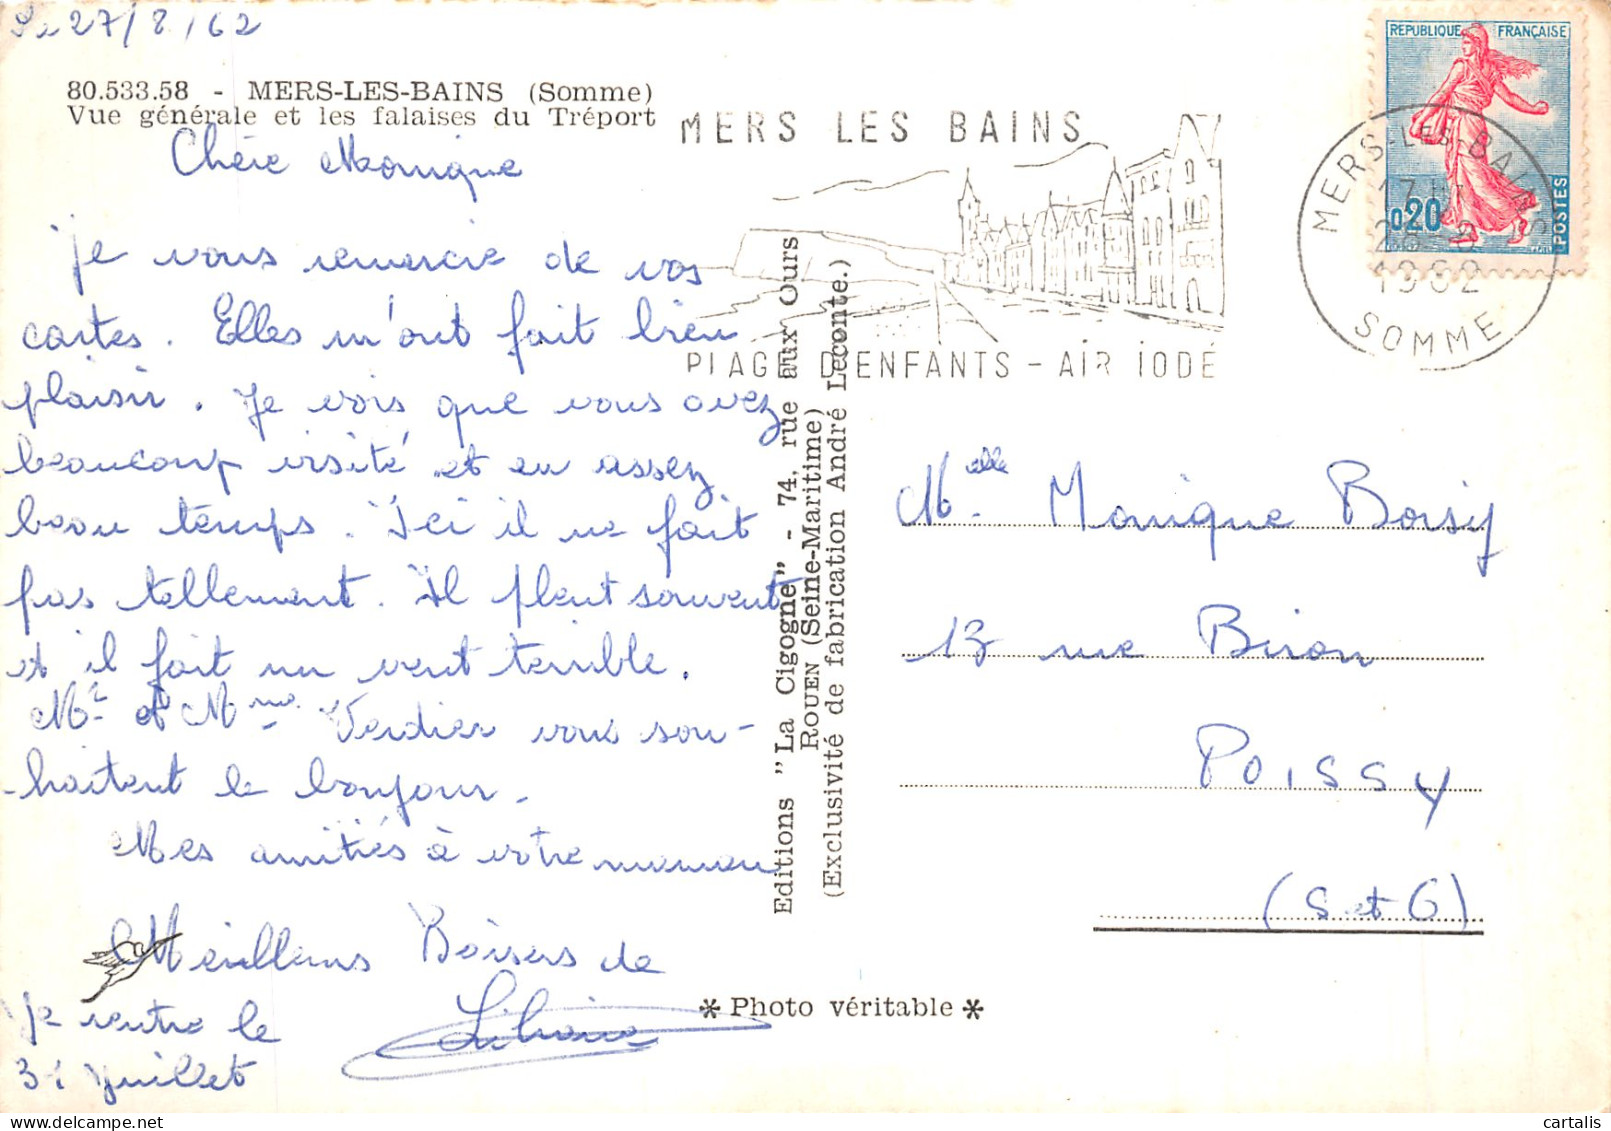 Le 27/8/62
80.533.58 - MERS-LES-BAINS (Somme)
Vue générale et les falaises du Tréport
Chère Monique
Je vous remercie de vos
cartes. Elles m'ont fait bien
plaisir. Je vois que vous avez
beaucoup visité et eu assez
beau temps. Ici il ne fait
pas tellement. Il pleut souvent
et il fait un vent terrible.
Mr et Mme Verdier vous sou-
haitent le bonjour.
Mes amitiés à votre maman
Meilleurs Baisers de
Je rentre le
31 Juillet
Liliane
MERS LES BAINS
PLAGE D'ENFANTS - AIR IODÉ
REPUBLIQUE FRANÇAISE
0,20
POSTES
MERS-LES-BAINS
17 H
1962
SOMME
Editions "La Cigogne" - 74, rue aux Ours
ROUEN (Seine-Maritime)
(Exclusivité de fabrication André Leconte.)
Melle Monique Borsy
13 rue Biron
POISSY
(S et O)
* Photo véritable *
cartalis